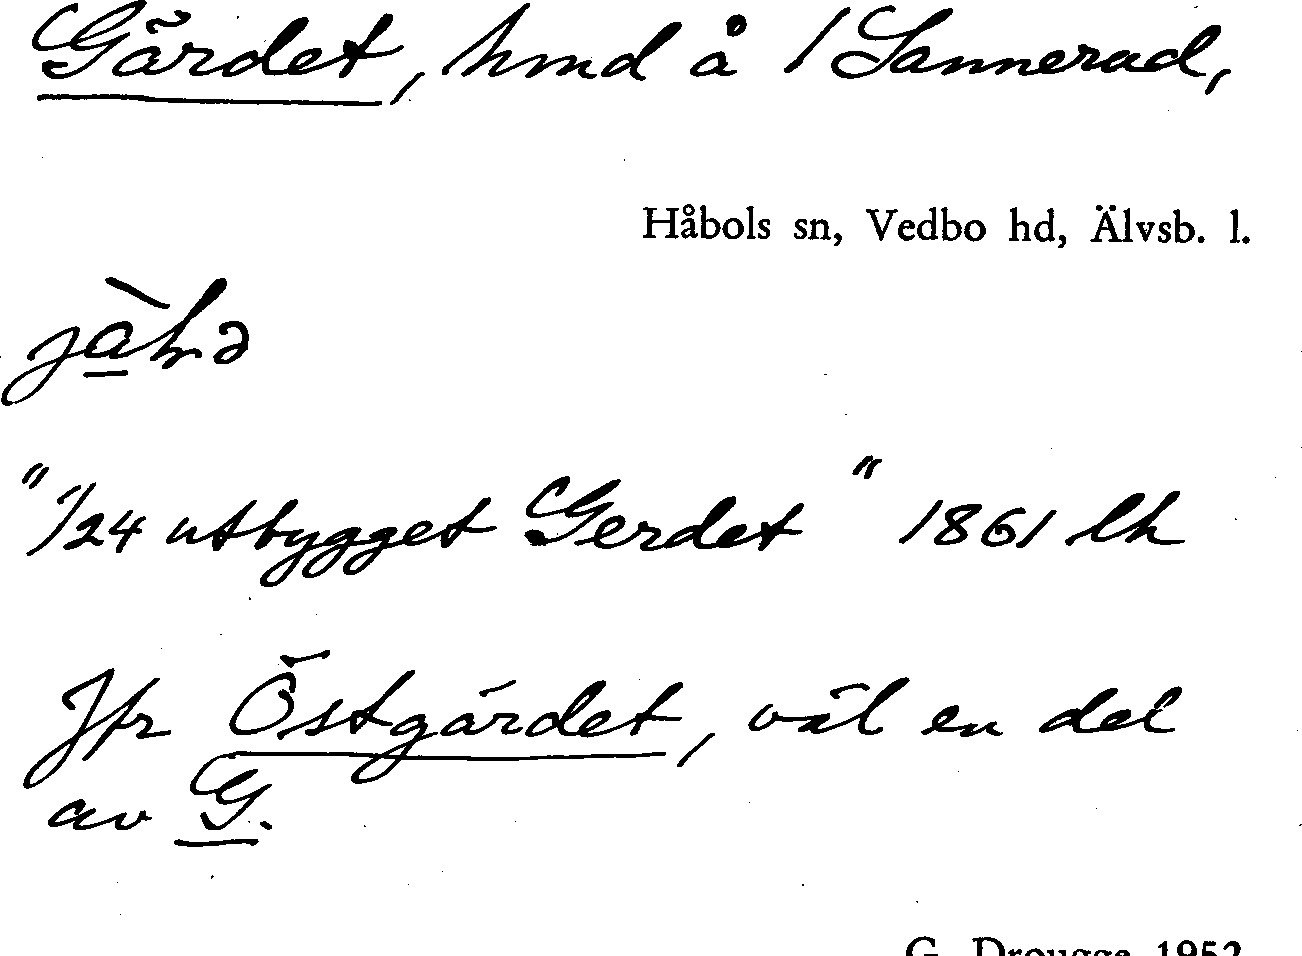 Gärdet, hmd å 1 Sannerud,
Håbols sn, Vedbo hd, Älvsb. l.
"1/24 utbygget Gerdet" 1861 lh
Jfr Östgärdet, väl en del
av G.
G. Drougge 1952